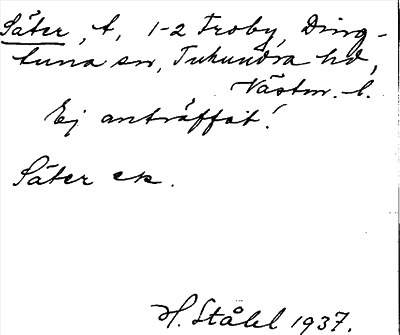 Säter, t, 1-2 Troby, Ding-
tuna sn, Tuhundra hd,
Västm. l.
Ej anträffat!
Säter ek.
H. Ståhl 1937.